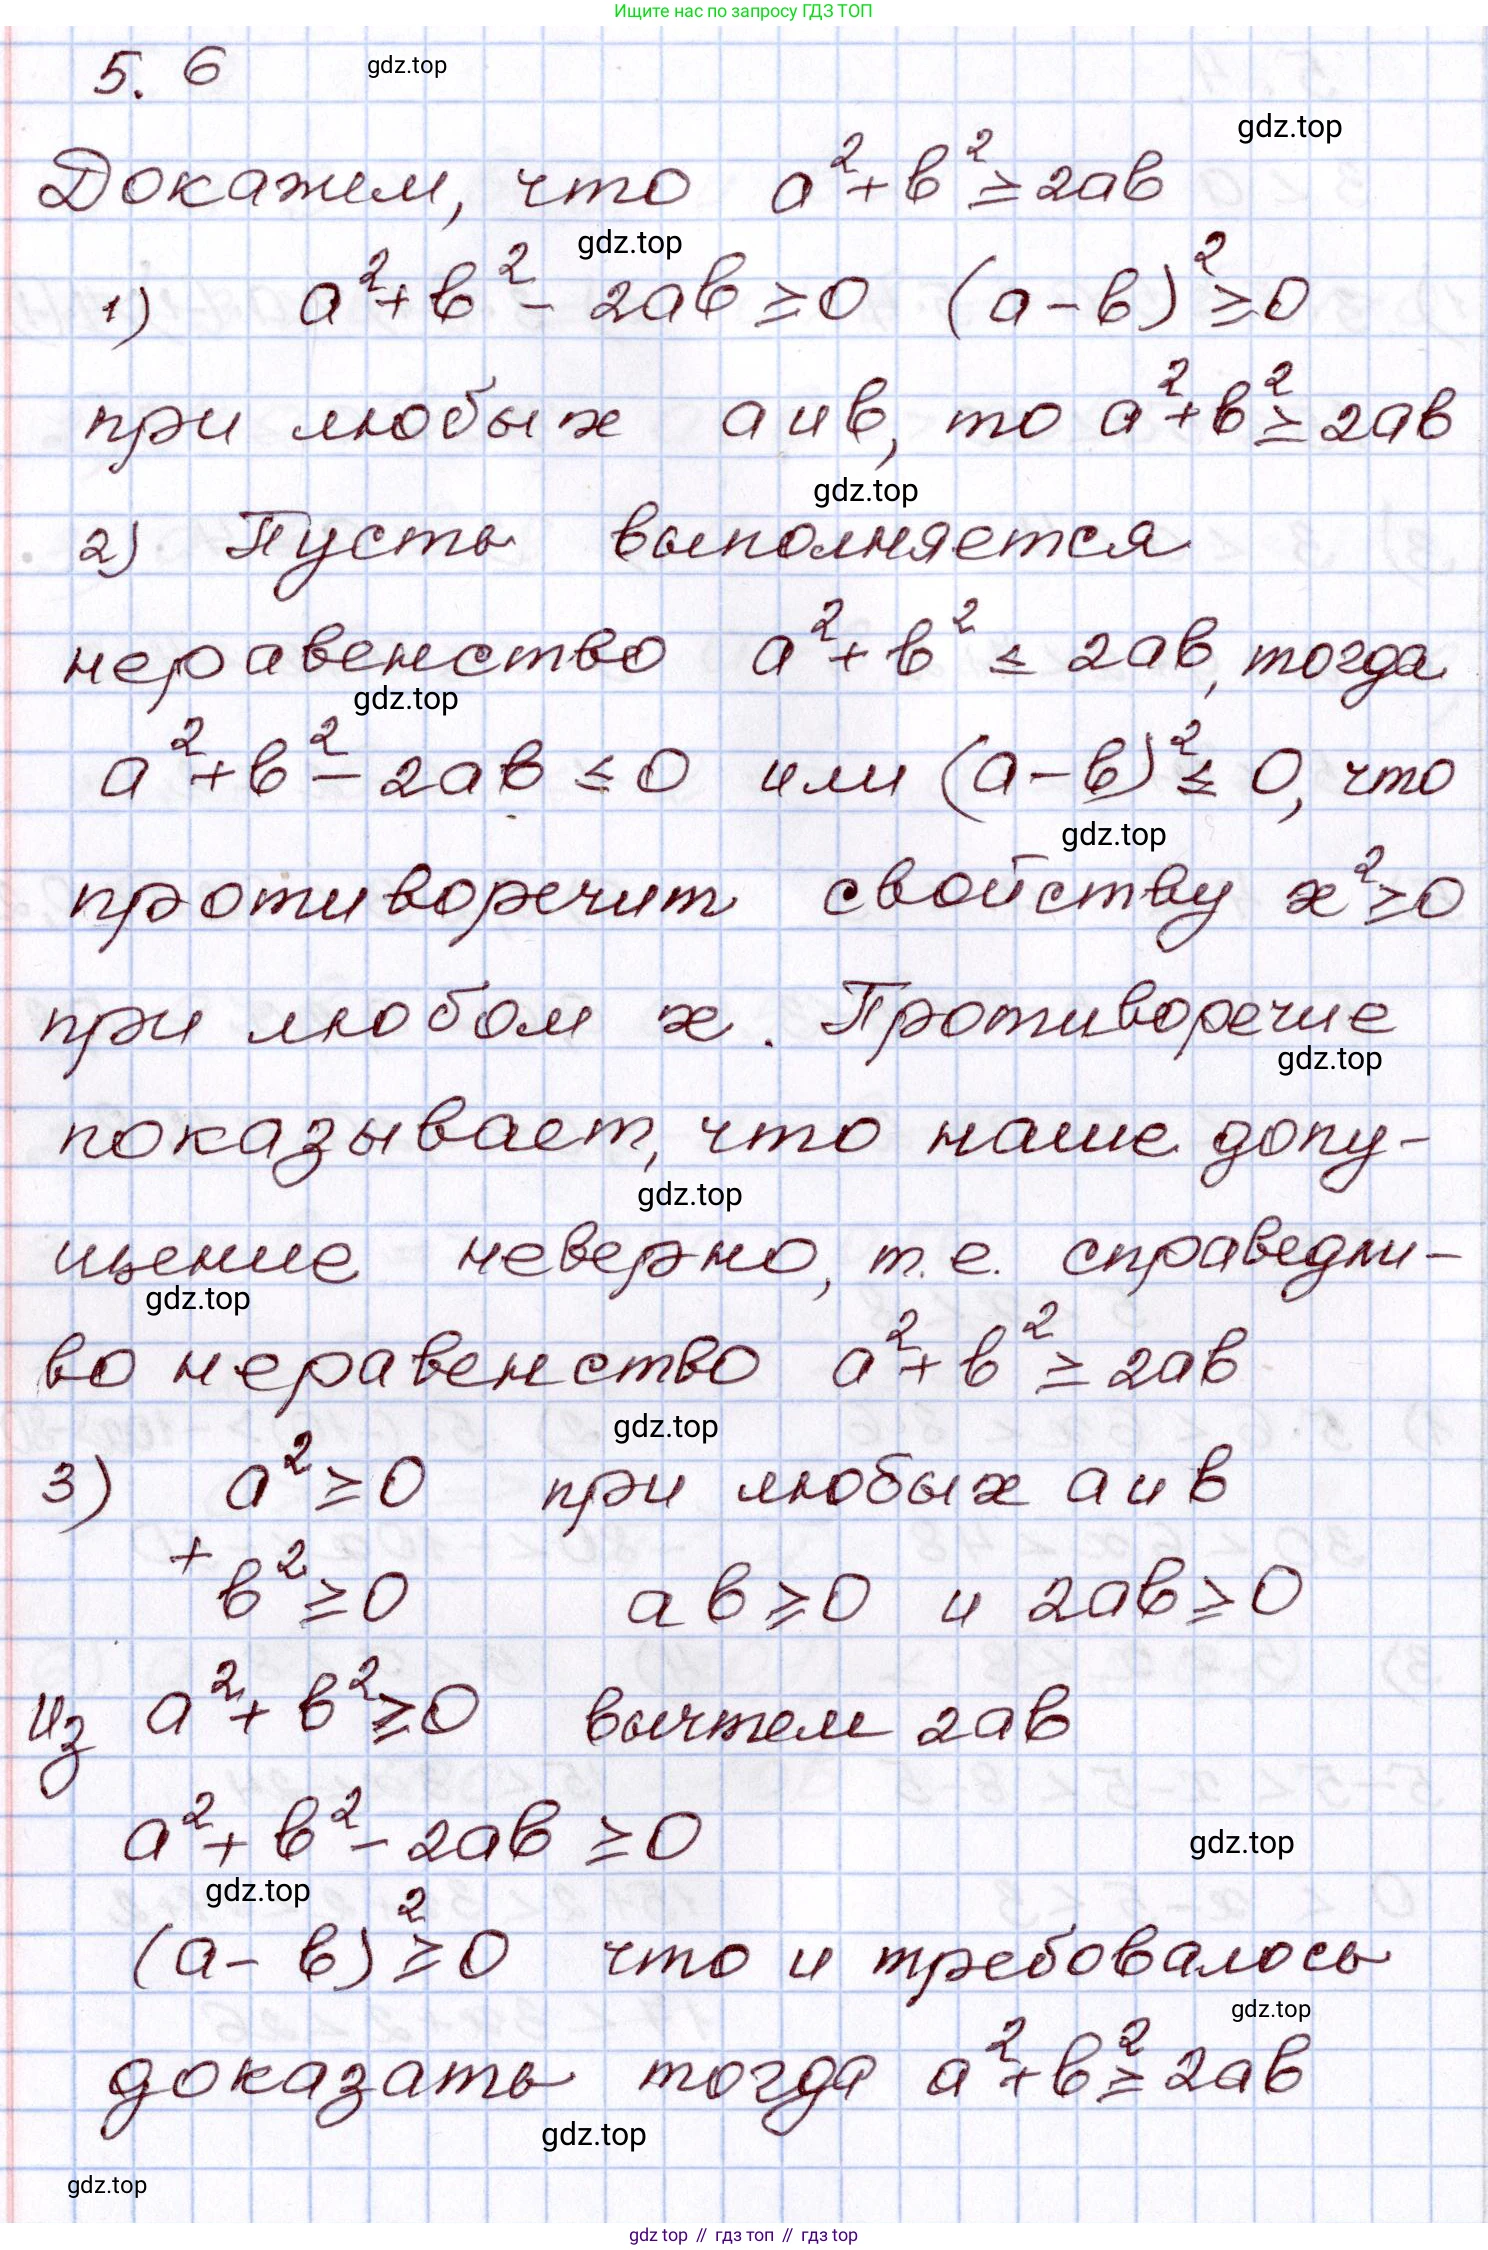 Ищите нас по запросу ГДЗ ТОП
5. 6
gdz.top
gdz.top
Докажем, что a²+b²≥2ab
gdz.top
1) a²+b²-2ab≥0 (a-b)²≥0
при любых a и b, то a²+b²≥2ab
gdz.top
2) Пусть выполняется
неравенство a²+b² ≤ 2ab, тогда
gdz.top
a²+b²-2ab≤0 или (a-b)²≤0, что
gdz.top
противоречит свойству x²≥0
при любом x. Противоречие
gdz.top
показывает, что наше допу-
gdz.top
щение неверно, т.е. справедли-
gdz.top
во неравенство a²+b²≥2ab
gdz.top
3) a²≥0 при любых a и b
+ b²≥0 ab≥0 и 2ab≥0
Из a²+b²≥0 вычтем 2ab
a²+b²-2ab≥0
gdz.top
gdz.top
(a-b)²≥0 что и требовалось
gdz.top
доказать тогда a²+b²≥2ab
gdz.top
gdz.top
gdz top // гдз топ // гдз top